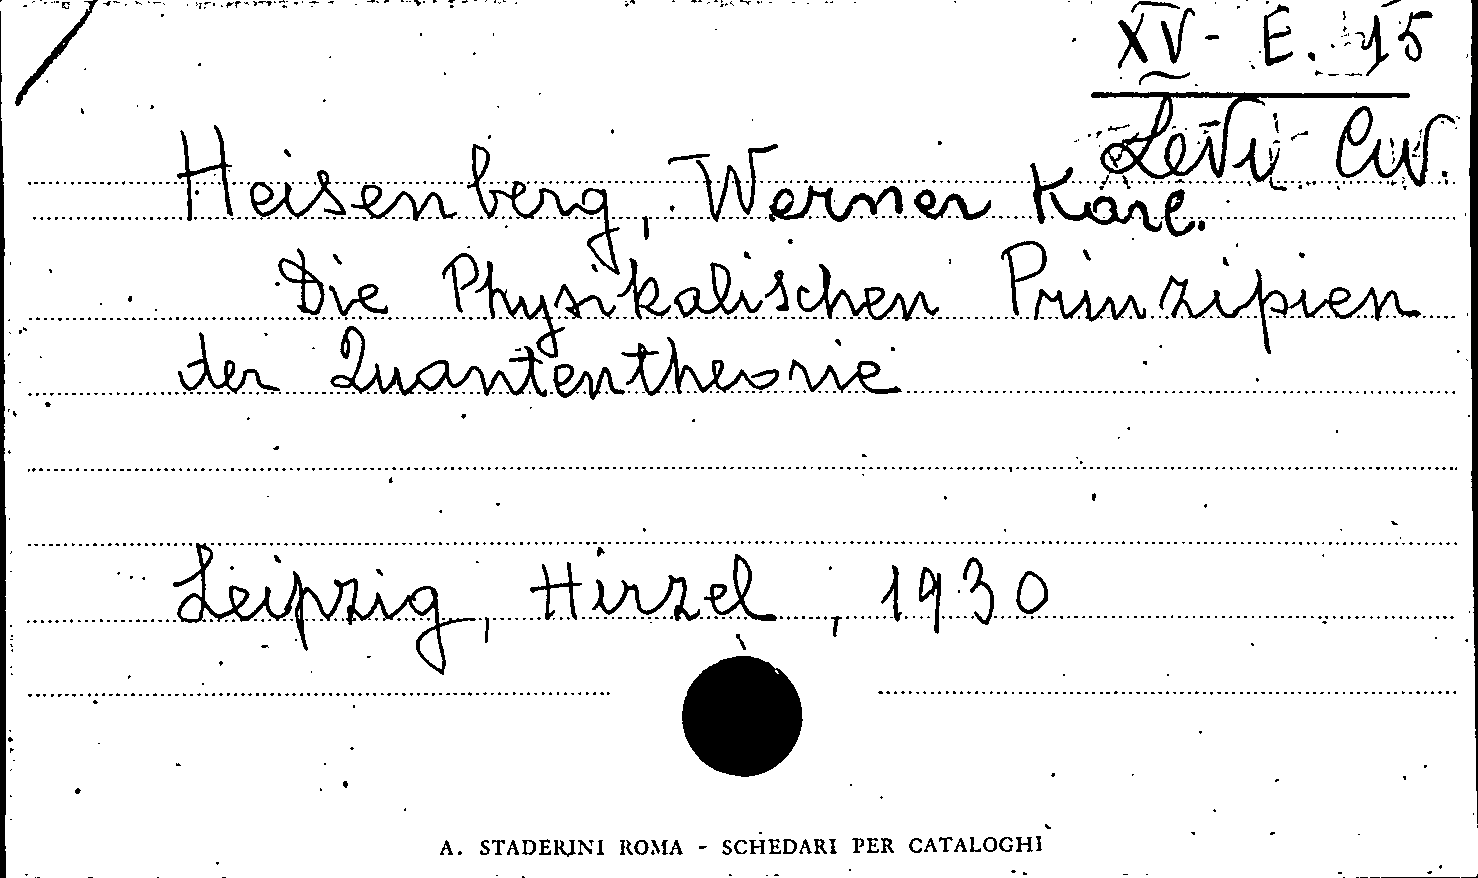 XV - E. 15
Levi Civ.
Heisenberg, Werner Karl.
Die Physikalischen Prinzipien
der Quantentheorie
Leipzig, Hirzel, 1930
A. STADERINI ROMA - SCHEDARI PER CATALOGHI